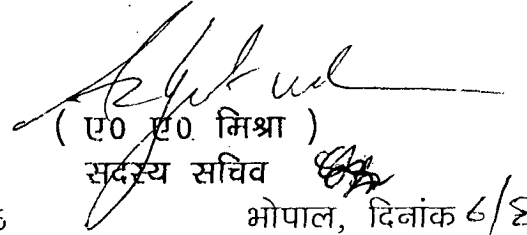 ( ए0 ए0 मिश्रा )
सदस्य सचिव
भोपाल, दिनांक 6/8